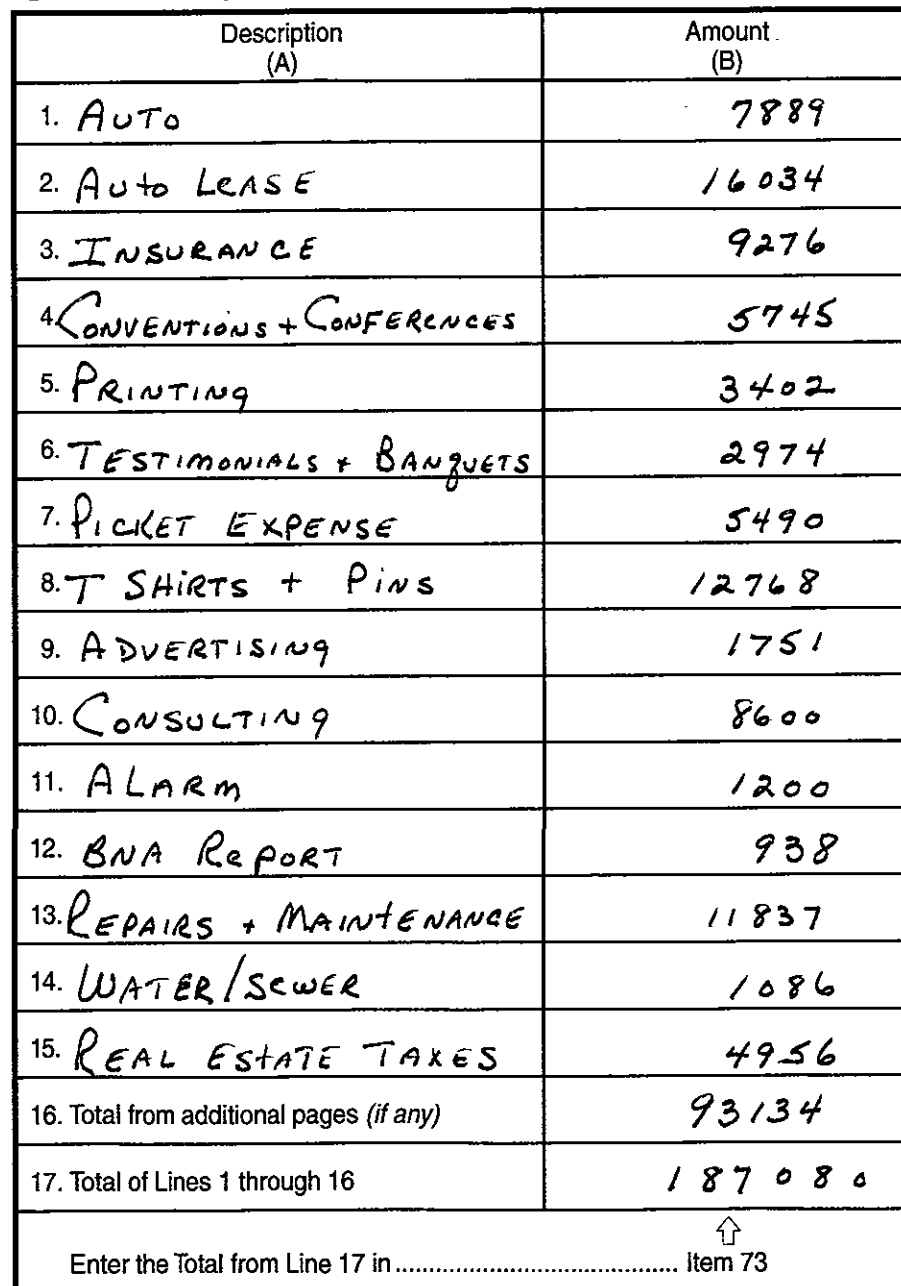 Description
(A)
Amount
(B)
1. AUTO 7889
2. Auto LEASE 16034
3. INSURANCE 9276
4. CONVENTIONS + CONFERENCES 5745
5. PRINTING 3402
6. TESTIMONIALS + BANQUETS 2974
7. PICKET EXPENSE 5490
8. T SHIRTS + PINS 12768
9. ADVERTISING 1751
10. CONSULTING 8600
11. ALARM 1200
12. BNA REPORT 938
13. REPAIRS + MAINTENANCE 11837
14. WATER/SEWER 1086
15. REAL ESTATE TAXES 4956
16. Total from additional pages (if any) 93134
17. Total of Lines 1 through 16 187080
Enter the Total from Line 17 in .......................................... Item 73